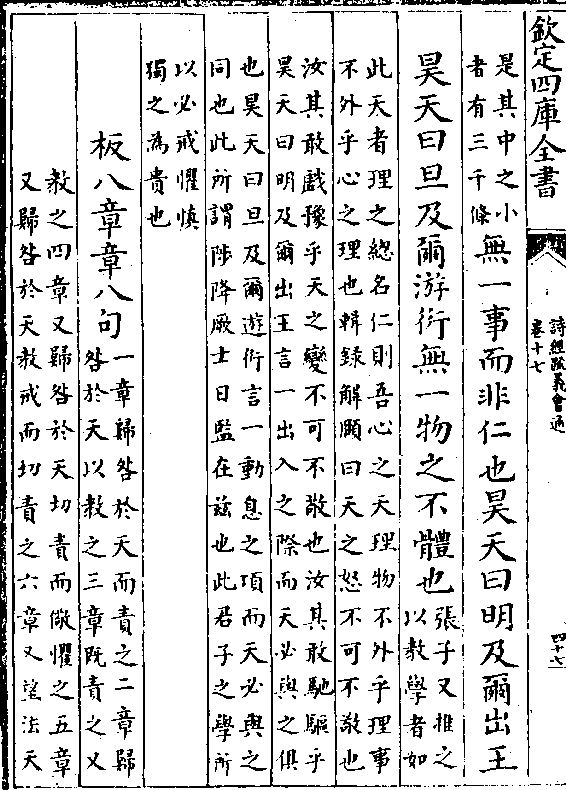 欽定四庫全書
詩經疏義會通
卷十七
四十七
是其中之小
者有三千條
無一事而非仁也昊天曰明及爾出王
昊天曰旦及爾游衍無一物之不體也
張子又推之
以教學者如
此天者理之總名仁則吾心之天理物不外乎理事
不外乎心之理也輯録解頤曰天之怒不可不敬也
汝其敢戲豫乎天之變不可不敬也汝其敢馳驅乎
昊天曰明及爾出王言一出入之際而天必與之俱
也昊天曰旦及爾遊衍言一動息之項而天必與之
同也此所謂陟降厥士日監在兹也此君子之學所
以必戒懼慎
獨之為貴也
板八章章八句
一章歸咎於天而責之二章歸
咎於天以教之三章既責之又
教之四章又歸咎於天切責而儆懼之五章
又歸咎於天教戒而切責之六章又望法天